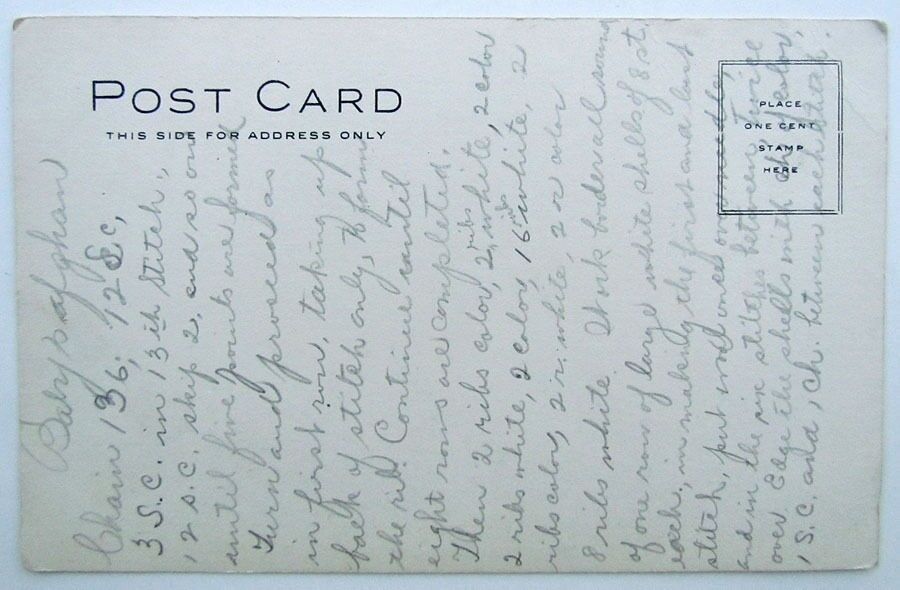 POST CARD
THIS SIDE FOR ADDRESS ONLY
PLACE
ONE CENT
STAMP
HERE
Baby's afghan
Chain 136, 12 S.c,
3 S.C. in 13th stitch,
12 s.c. skip 2, and so on
until five points are formed
Turn and proceed as
in first row, taking up
back of stitch only, to form
the rib. Continue until
eight rows are completed.
Then 2 ribs color, 2 ribs white, 2 color
2 ribs white, 2 color, 16 ribs white, 2
ribs color, 2 r. white, 2 r color
8 ribs white. Work border all
of one row of large white shells of 8 st,
each, in making the first and last
stitch, put wool once over needle,
and in the six stitches between twice
over. Edge the shells with ch of color,
1 S.C. and 1 ch. between each stitch.